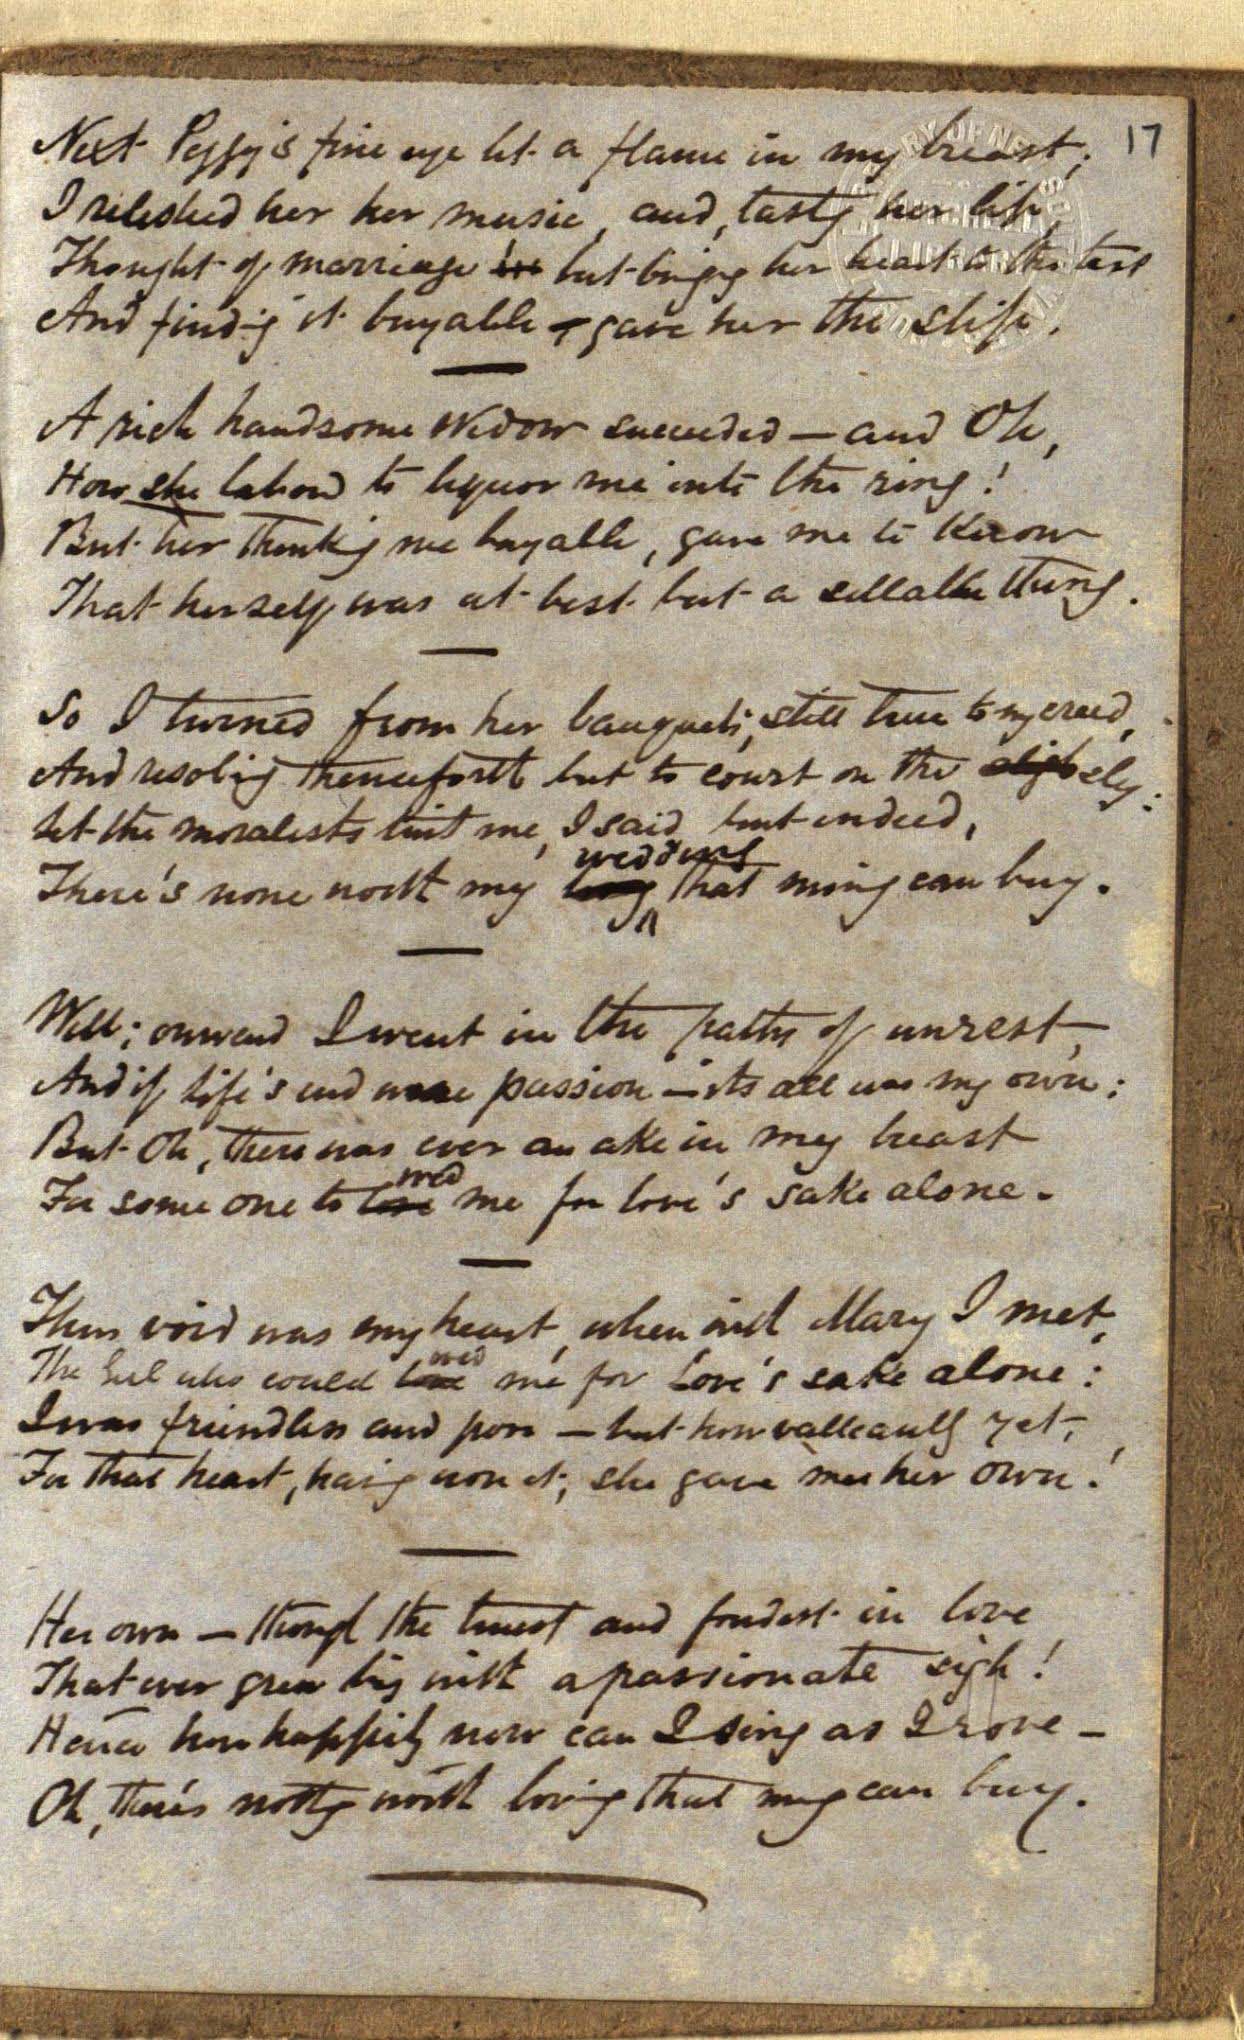 17
Next Peggy's fine eye lit a flame in my breast;
I relished her her music, and, tastg her lip,
Thought of marriage but bringg her heart to the test
And find-g it buyable — gave her the slip.
A rich handsome Widow succeeded — and Oh,
How she labord to liquor me into the ring!
But her thinkg me buyable, gave me to know
That herself was at best but a sellable thing.
So I turned from her banquets, still true to my creed,
And resolvig thenceforth but to court on the sly:
Let the moralists twit me, I said, but indeed,
wedding
There's none worth my lovg that mony can buy.
Well; onward I went in the paths of unrest,
And if life's end were passion — its all was my own:
But Oh, there was ever an ake in my breast
wed
For some one to love me for love's sake alone.
Thus void was my heart, when mild Mary I met,
wed
The Girl who could love me for Love's sake alone:
I was friendless and poor — but how valleantly yet,
For that heart, havig won it, she gave me her own!
Her own — though the truest and fondest in love
That ever grew big with a passionate sigh!
Hence how happily now can I sing as I rove —
Oh, there's nothg worth lovig that mny can buy.